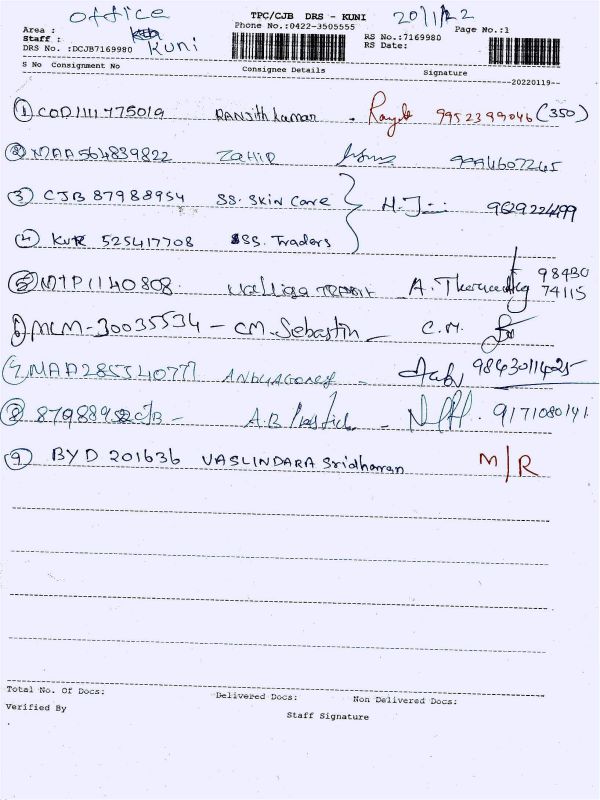 office
TPC/CJB DRS - KUNI
20/1/22
Area :
Phone No.:0422-3505555
Page No.:1
Staff :
Kuni
RS No.:7169980
DRS No. :DCJB7169980
RS Date:
S No Consignment No Consignee Details Signature
20220119
① COD1111775019 RANJith kumar 9952399046 (350)
② MAA564839822 ZAHIR 9994607245
③ CJB 87988954 SS. Skin Care 9629224499
④ KVR 525417708 SS. Traders
⑤ MTP1140808 TRANSIT A. 98430 74115
⑥ MLM-30035534 - CM. Sebastin C.M.
⑦ MAA285540777 9843011425
⑧ 87988952 CJB - A.B 9171080141
⑨ BYD 201636 VASUNDARA Sridharan M/R
Total No. Of Docs: Delivered Docs: Non Delivered Docs:
Verified By Staff Signature